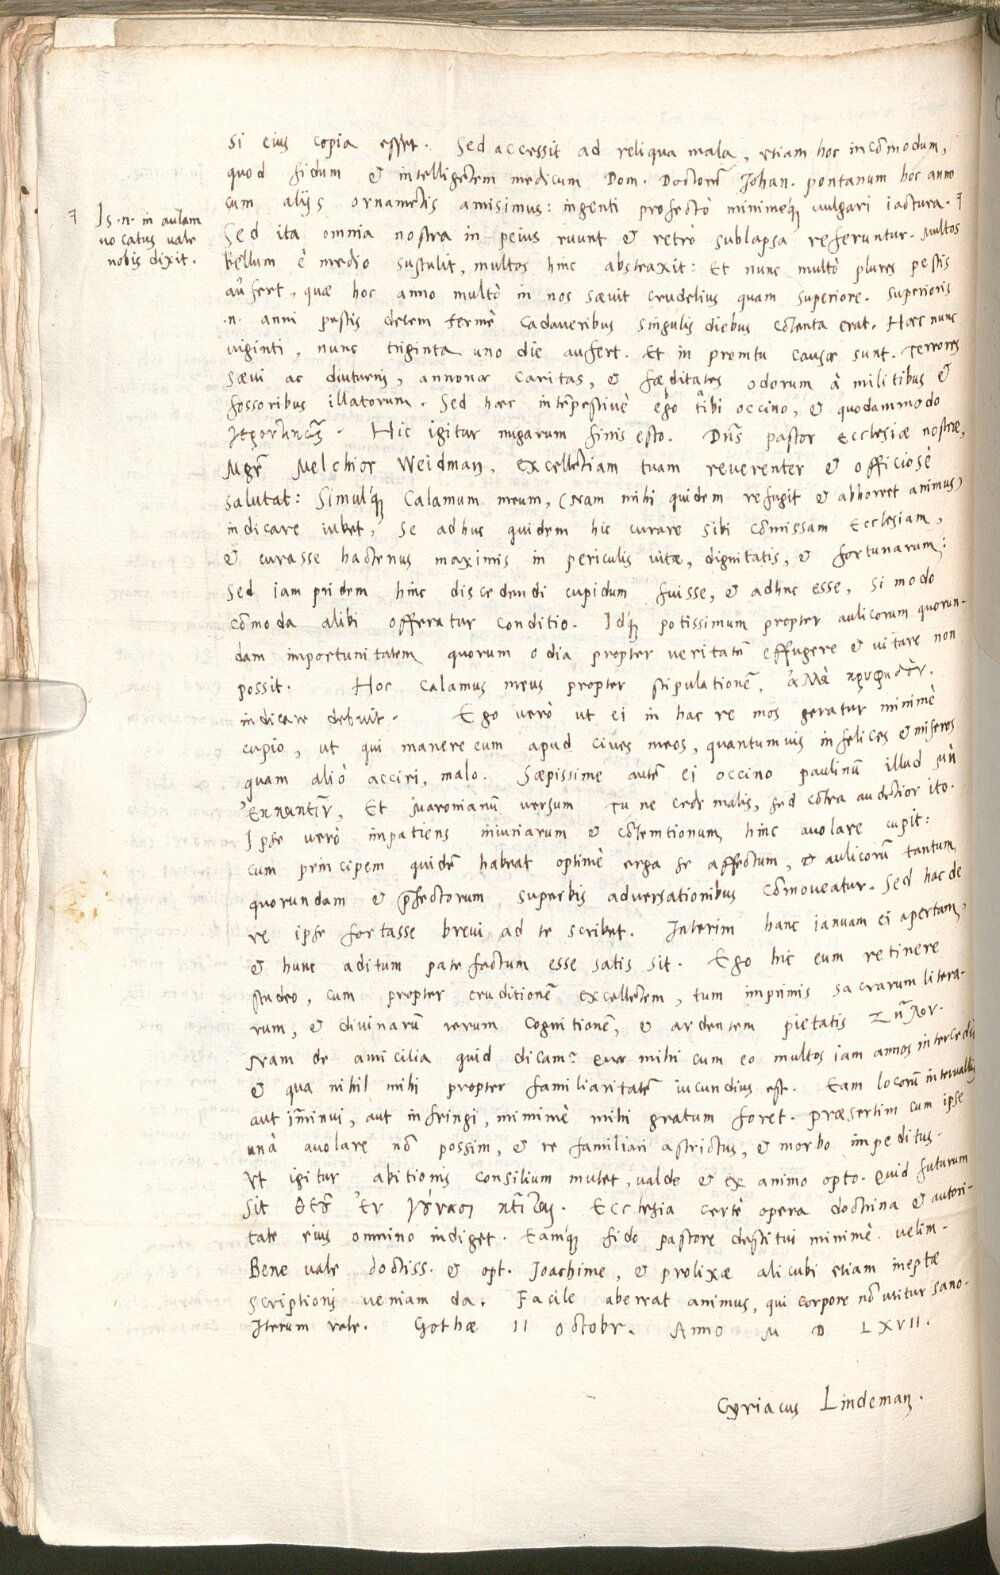 si eius copia esset. Sed accessit ad reliqua mala, etiam hoc incōmodum,
quod fidum & intelligētem medicum Dom. Doctorē Johan. pontanum hoc anno
cum alijs ornamētis amisimus: ingenti profectò minimeq́ꝫ vulgari iactura. ⁊
⁊ Is .n. in aulam
vocatus vale
nobis dixit.
Sed ita omnia nostra in peius ruunt & retrò sublapsa referuntur. Multos
bellum è medio sustulit, multos hinc abstraxit: Et nunc multò plures pestis
aufert, quæ hoc anno multò in nos sævit crudelius quam superiore. Superioris
.n. anni pestis decem fermè cadaveribus singulis diebus cōtenta erat. Hæc nunc
viginti, nunc triginta uno die aufert. Et in promtu causæ sunt. Terrores
sævi ac diuturni, annonæ caritas, & fæditates odorum à militibus &
fossoribus illatorum. Sed hæc intēpestivè ego tibi occino, & quodammodo
Hic igitur nugarum finis esto. Dn̄s pastor Ecclesiæ nostræ,
Mgr̄ Melchior Weidman, excellētiam tuam reverenter & officiosè
salutat: Simulq́ꝫ calamum meum, (Nam mihi quidem refugit & abhorret animus)
indicare iubet, se adhuc quidem hic curare sibi cōmissam Ecclesiam,
& curasse hactenus maximis in periculis vitæ, dignitatis, & fortunarum:
Sed iam pridem hinc discedendi cupidum fuisse, & adhuc esse, si modo
cōmoda alibi offeratur conditio. Idq́ꝫ potissimum propter aulicorum quorun-
dam importunitatem quorum odia propter veritatē effugere & vitare non
possit. Hoc calamus meus propter stipulationē,
indicare debuit. Ego verò ut ei in hac re mos geratur minimè
cupio, ut qui manere eum apud cives meos, quantumvis infelices & miseros
quam aliò acciri, malo. Sæpissime autē ei occino paulinū illud μὴ
Et Maronianū versum Tu ne cede malis, sed cōtra audētior ito.
Ipse verò impatiens iniuriarum & cōtemtionum hinc avolare cupit:
cum principem quidē habeat optimè erga se affectum, & aulicorū tantum
quorundam & p̄fectorum superbis adversationibus cōmoveatur. Sed hac de
re ipse fortasse brevi ad te scribet. Interim hanc ianuam ei apertam,
& hunc aditum patefactum esse satis sit. Ego hic eum retinere
studeo, cum propter eruditionē excellētem, tum imprimis sacrarum litera-
rum, & divinarū rerum cognitionē, & ardentem pietatis ζῆλον.
Nam de amicitia quid dicam? Quæ mihi cum eo multos iam annos intercedit
& qua nihil mihi propter familiaritatē iucundius est. Eam locorū intervallis
aut im̄inui, aut infringi, minimè mihi gratum foret. Præsertim cum ipse
unà avolare nō possim, & re familiari astrictus, & morbo impeditus.
Ut igitur abitionis consilium mutet, valde & ex animo opto. Quid futurum
sit θεῦ ἐν γούνασι κεῖται. Ecclesia certè opera doctrina & autori-
tate eius omnino indiget. Eamq́ꝫ fido pastore destitui minimè velim.
Bene vale doctiss. & opt. Joachime, & prolixæ alicubi etiam ineptæ
scriptioni veniam da. Facile aberrat animus, qui corpore nō utitur sano.
Iterum vale. Gothæ 11 Octobr. Anno M D LXVII.
Cyriacus Lindeman.